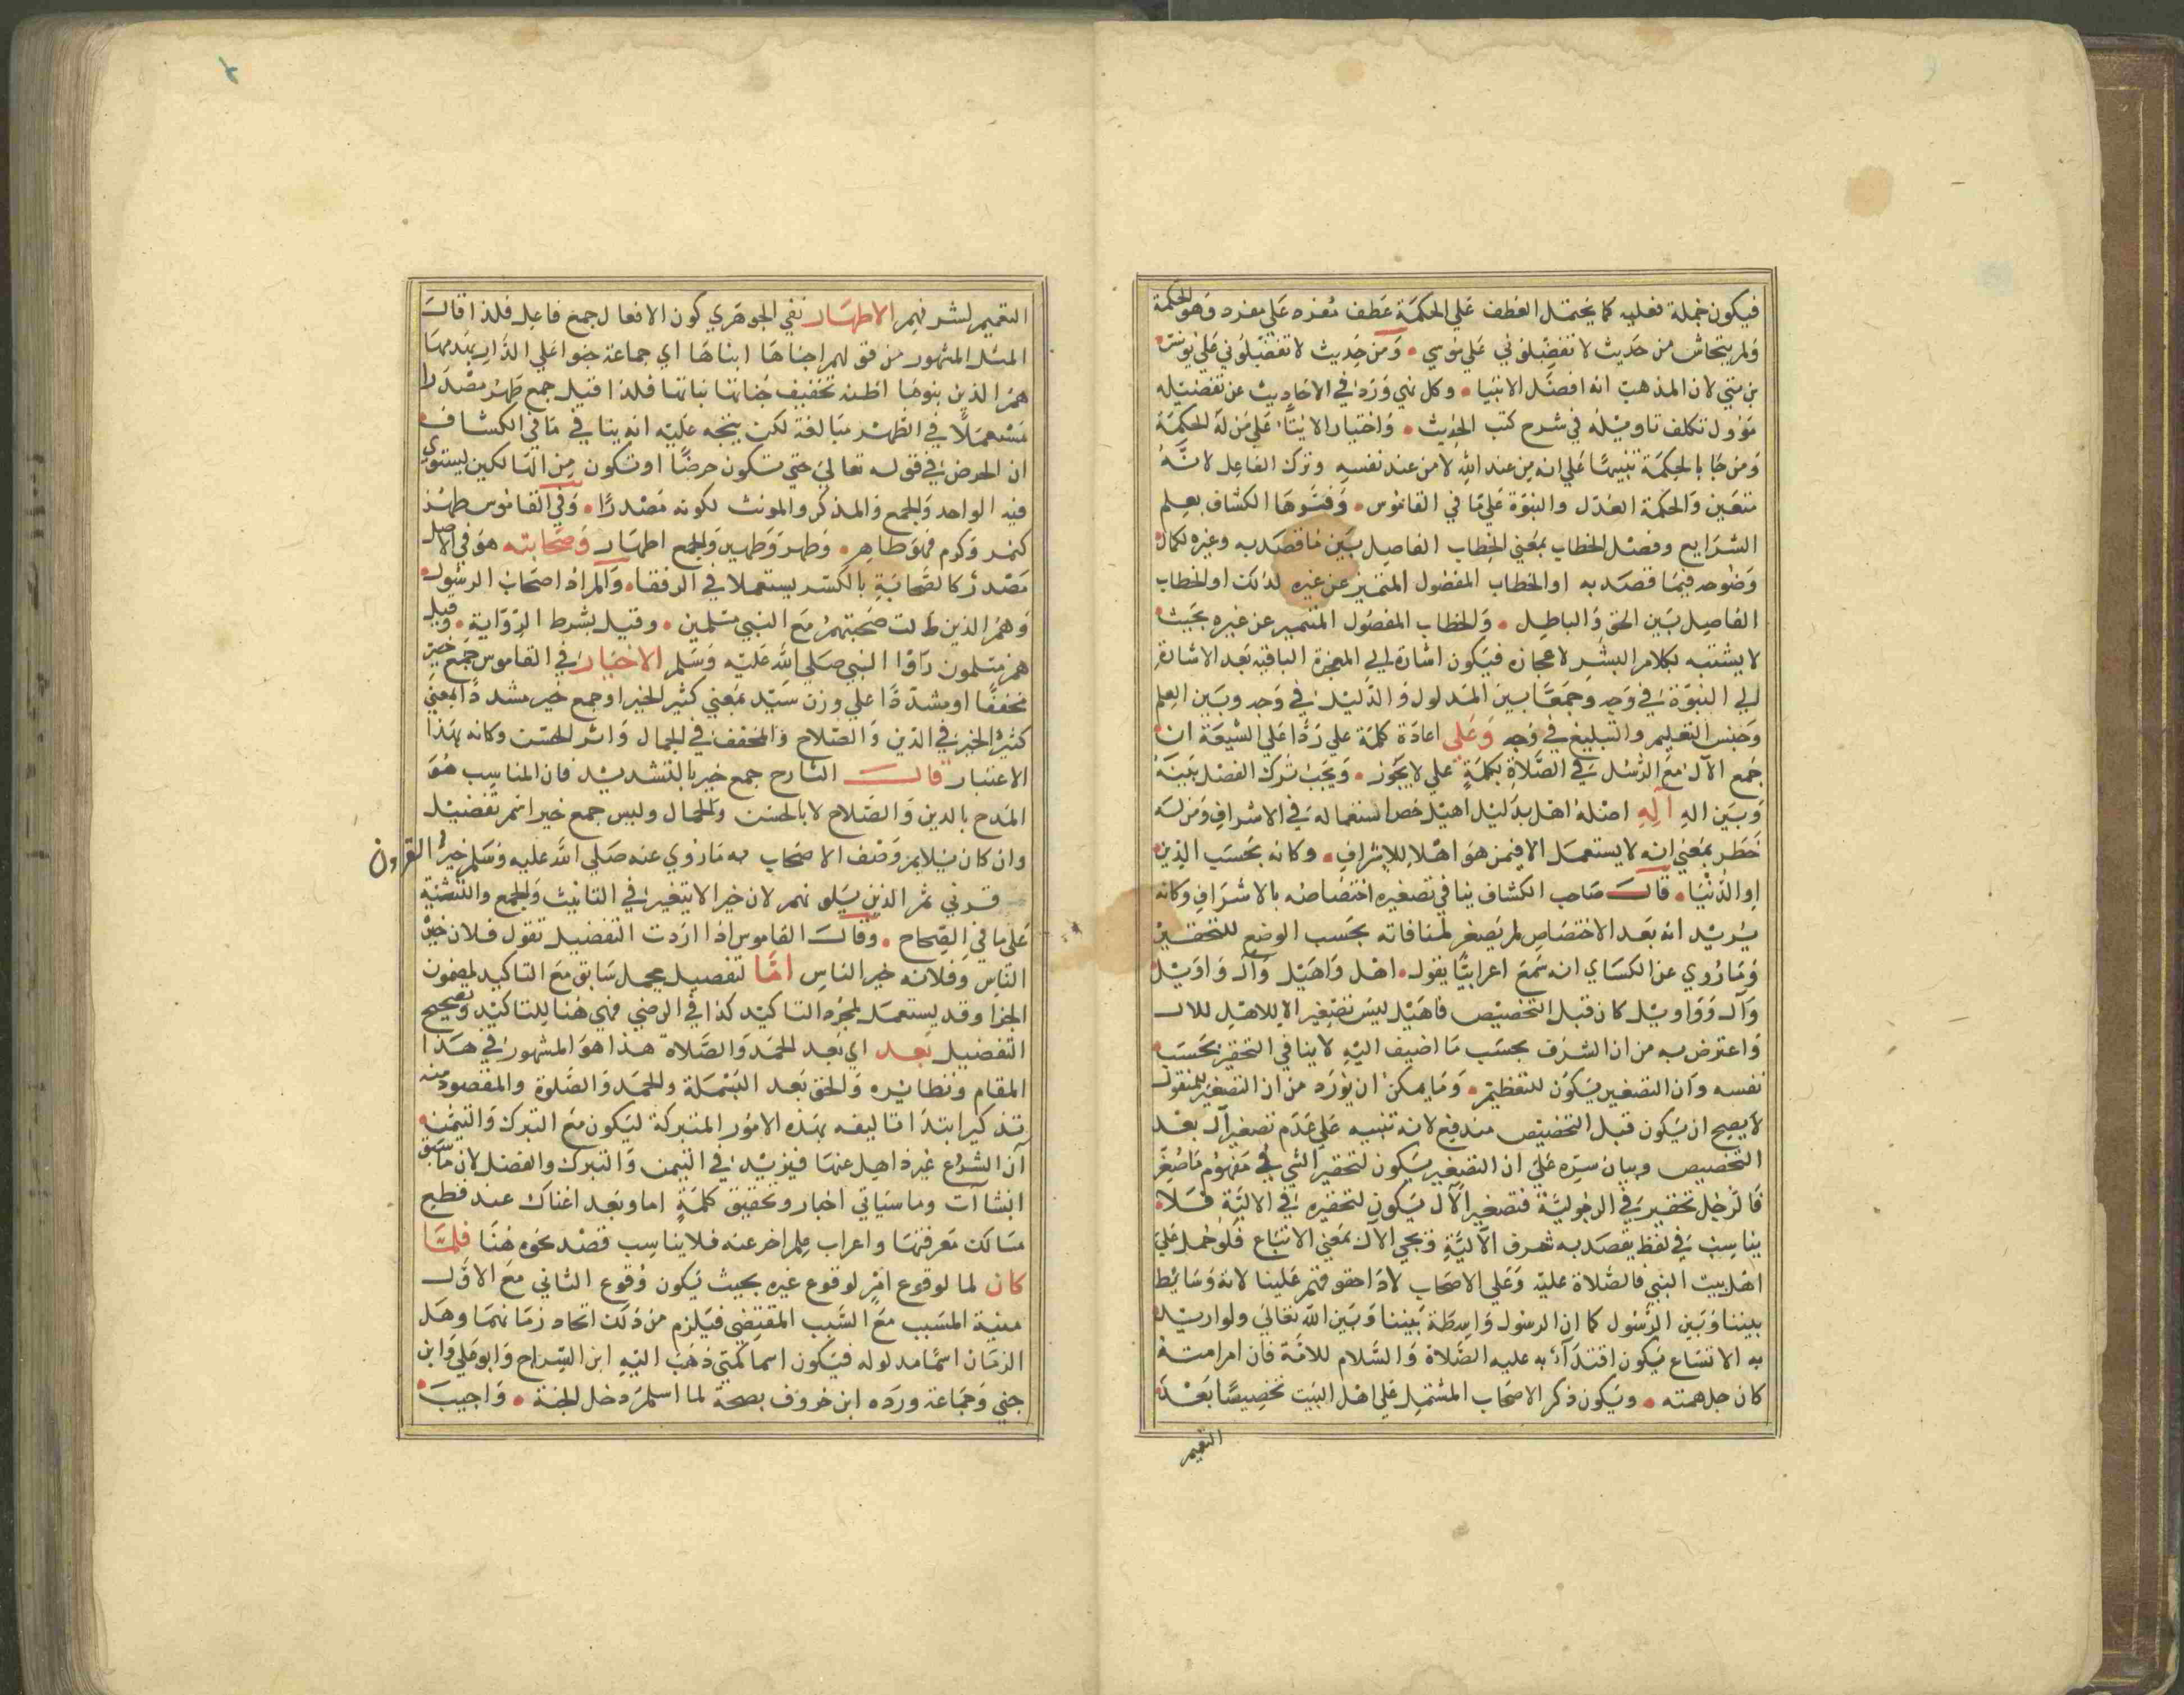 فيكون جملة فعليه كما يحتمل العطف علي الحكمة عطف مفرد علي مفرد وهو الحكمة
ولم يتحاش من حديث لا تفضلوني علي موسي . ومن حديث لا تفضلوني علي يونس
بن متي لان المذهب انه افضل الانبيا . وكل نهي ورد في الاحاديث عن تفضيله
مؤول تكلف تاويله في شرح كتب الحديث . واختيار الايتا علي من له الحكمة
ومن جا بالحكمة تنبيها علي انه من عند الله لا من عند نفسه وترك الفاعل لانه
متعين والحكمة العدل والنبوة علي ما في القاموس . وفسرها الكشاف بعلم
الشرايع وفصل الخطاب بمعني الخطاب الفاصل بين ما قصد به وغيره لكمال
وضوحه فيما قصد به او الخطاب المفصول المتميز عن غيره لذلك او الخطاب
الفاصل بين الحق والباطل . والخطاب المفصول المتميز عن غيره بحيث
لا يشتبه بكلام البشر لاعجازه فيكون اشارة الي المعجزة الباقية بعد الاشارة
الي النبوة في وجه وجمعا بين المدلول والدليل في وجه وبين العلم
وحبس التعليم والتبليغ في وجه وعلي اعادة كلمة علي ردا علي الشيعة ان
جمع الآل مع الرسل في الصلاة بكلمة علي لا يجوز . ويجب ترك الفصل بينه
وبين اله آله اصله اهل بدليل اهيل خص استعماله في الاشراف ومن له
خطر بمعني انه لا يستعمل الا فيمن هو اهلا للاشراف . وكانه بحسب الدين
او الدنيا . قال صاحب الكشاف ينافي تصغيره اختصاصه بالاشراف وكانه
يريد انه بعد الاختصاص لم يصغر لمنافاته بحسب الوضع للتحقير
وما روي عن الكساي انه سمع اعرابيا يقول . اهل واهيل وآل واويل
وآل وواويل كان قبل التخصيص فاهيل ليس تصغير الا للاهل للال
واعترض به من ان الشرف بحسب ما اضيف اليه لا ينافي التحقير بحسب
نفسه وان التصغير يكون للتعظيم . وما يمكن ان يورد من ان التصغير المنقول
لا يصح ان يكون قبل التخصيص مندفع لانه تنبيه علي عدم تصغير آل بعد
التخصيص وبيان سره علي ان التصغير يكون لتحقير الشي في مفهوم ما صغر
فالرجل تحقير في الرجولية فتصغير الآل يكون لتحقيره في الالية فلا
يناسب في لفظ يقصد به شرف الآلية ويجي الآل بمعني الاتباع فلو حمل علي
اهل بيت النبي فالصلاة عليه وعلي الاصحاب لاداحقوقهم علينا لانه وسايط
بيننا وبين الرسول كما ان الرسول واسطة بيننا وبين الله تعالي ولو اريد
به الاتساع يكون اقتدآء به عليه الصلاة والسلام للامة فان امر امته
كان جل همته . ويكون ذكر الاصحاب المشتمل علي اهل البيت تخصيصا بعد
التعميم
التعميم لشرفهم الاطهار نفي الجوهري كون الافعال جمع فاعل فلذا قال
المثل المشهور من قولهم اجناها ابناها اي جماعة جنوا علي الدار بهدمها
هم الذين بنوها اظنه تخفيف جناتها بناتها فلذا قيل جمع طهر مصدرا
مستعملا في الطهر مبالغة لكن يتجه عليه انه ينافي ما في الكشاف
ان الحرض في قوله تعالي حتي تكون حرضا او تكون من الهالكين يستوي
فيه الواحد والجمع والمذكر والمونث لكونه مصدرا . وفي القاموس طهر
كنصر وكرم فهو طاهر . وطهر وطهير والجمع اطهار وصحابته هو في الاصل
مصدر كالصحابة بالكسر يستعملا في الرفقا . والمراد اصحاب الرسول
وهم الذين طالت صحبتهم مع النبي مسلمين . وقيل بشرط الرواية . وقيل
هم مسلمون رأوا النبي صلي الله عليه وسلم الاخيار في القاموس جمع خير
مخففا او مشددا علي وزن سيد بمعني كثير الخير او جمع خير مشددا بمعني
كثير الخير في الدين والصلاح والمخفف في الجمال واثر الحسن وكانه بهذا
الاعتبار قال الشارح جمع خير بالتشديد فان المناسب هو
المدح بالدين والصلاح لا بالحسن والجمال وليس جمع خير اسم تفضيل
وان كان يلايم وصف الاصحاب به ما روي عنه صلي الله عليه وسلم خير القرون
قرني ثم الذين يلونهم لان خير لا يتغير في التانيث والجمع والتثنية
علي ما في الصحاح . وقال القاموس اذا اردت التفضيل تقول فلان خير
الناس وفلانه خير الناس اما لتفصيل مجمل سابق مع التاكيد لمضمون
الجزا وقد يستعمل لمجرد التاكيد كذا في الرضي فهي هنا للتاكيد وتصحيح
التفضيل بعد اي بعد الحمد والصلاة هذا هو المشهور في هذا
المقام ونظائره والحق بعد البسملة والحمد والصلوة والمقصود منه
تذكير ابتدا تاليفه بهذه الامور المتبركة ليكون مع التبرك والتيمن
آن الشروع غير ذاهل عنها فيزيد في التيمن والتبرك والفضل لان ما سبق
انشاآت وما سياتي اخبار وتحقيق كلمة اما وبعد اغناك عند قطع
مسالك معرفتها واعراب علم اخر عنه فلا يناسب قصد نحوه هنا فلما
كان لما لوقوع امر لوقوع غيره بحيث يكون وقوع الثاني مع الاول
معية المسبب مع السبب المقتضي فيلزم من ذلك اتحاد زمانهما وهل
الزمان اسما مدلوله فيكون اسما كمتي ذهب اليه ابن السراج وابو علي وابن
جني وجماعة ورده ابن خروف بصحة لما اسلم دخل الجنة . واجيب